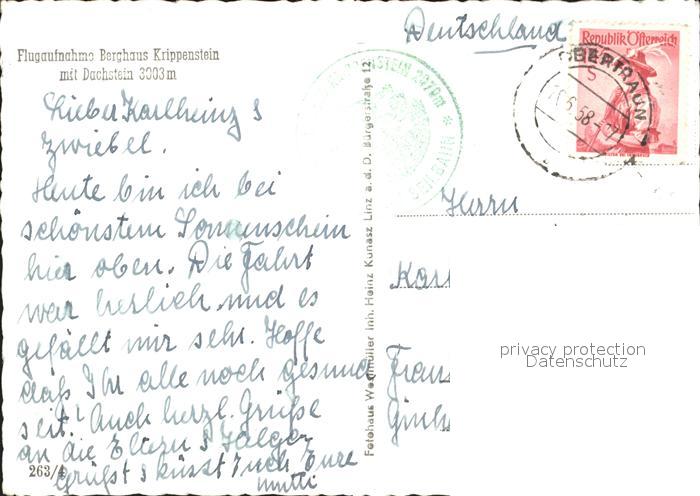 Flugaufnahme Berghaus Krippenstein
mit Dachstein 3003m
Lieber Karlheinz &
Zwiebel.
Heute bin ich bei
schönstem Sonnenschein
hier oben. Die Fahrt
war herlich und es
gefällt mir sehr. Hoffe
daß Ihr alle noch gesund
seit! Auch herzl. Grüße
an die Eltern & Helge
Grüßt & küsst Euch Eure
Mutti
263/4
Fotohaus Westmüller Inh. Heinz Kunasz Linz a. d. D. Bürgerstraße 12
KRIPPENSTEIN 2070m
Deutschland
Republik Österreich
S
OBERTRAUN
6.58
Herrn
Karl
privacy protection
Datenschutz